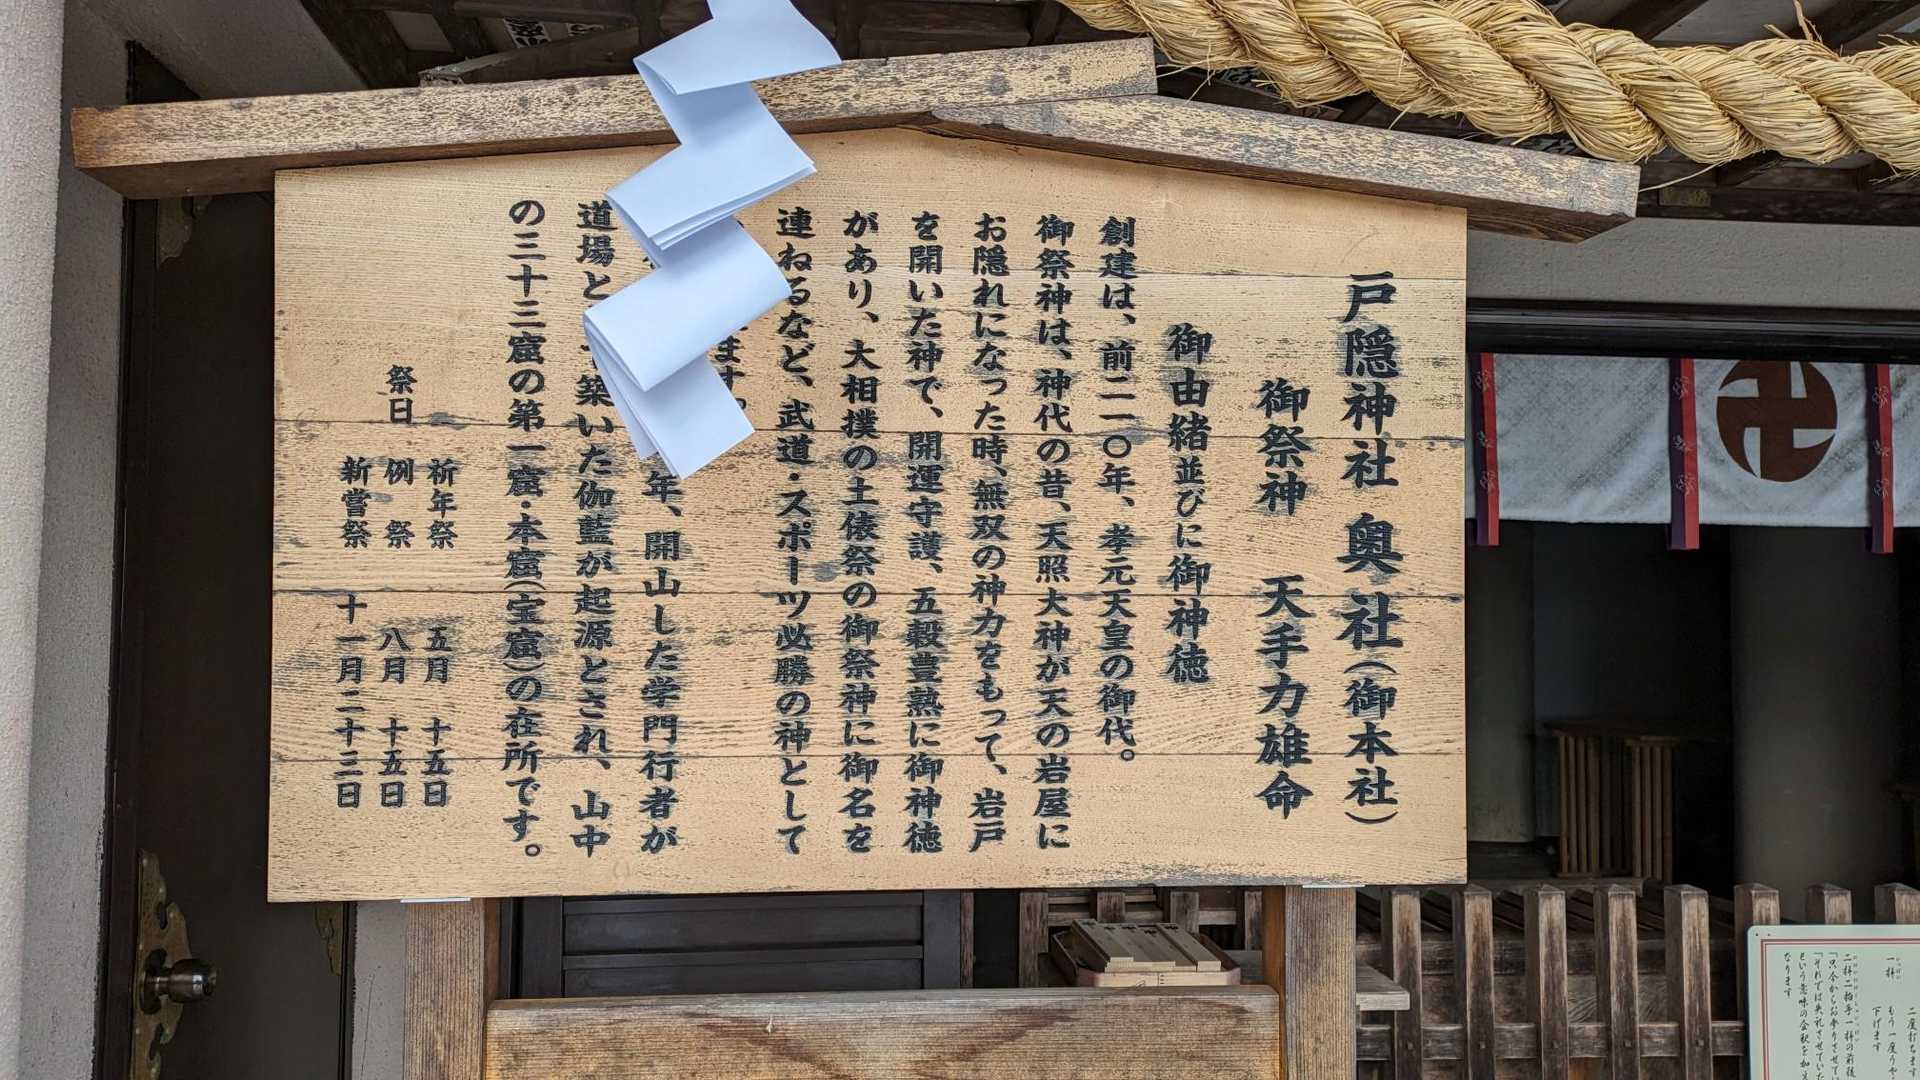 戸隠神社 奥社(御本社)
御祭神 天手力雄命
御由緒並びに御神徳
創建は、前二一〇年、孝元天皇の御代。
御祭神は、神代の昔、天照大神が天の岩屋に
お隠れになった時、無双の神力をもって、岩戸
を開いた神で、開運守護、五穀豊熟に御神徳
があり、大相撲の土俵祭の御祭神に御名を
連ねるなど、武道・スポーツ必勝の神として
ます。
年、開山した学門行者が
道場と 築いた伽藍が起源とされ、山中
の三十三窟の第一窟・本窟(宝窟)の在所です。
祭日
祈年祭 五月 十五日
例 祭 八月 十五日
新嘗祭 十一月二十三日
二度打ちます
もう一度
下げます
一拝
二拝二拍手一拝の前後
なります